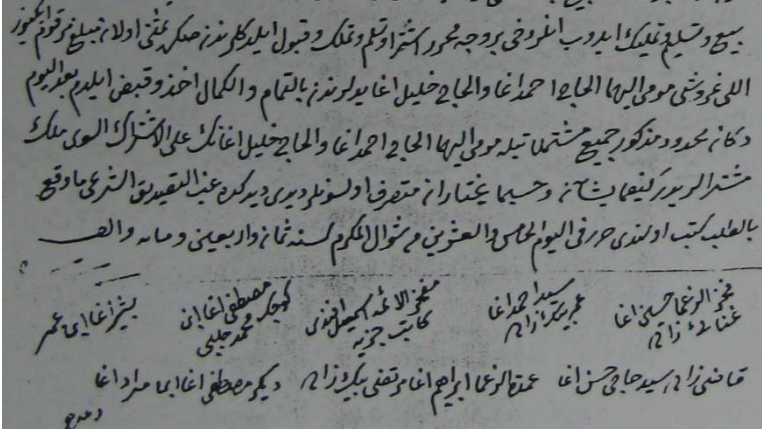 بيع وتسليم وتمليك ايدوب انلر دخى بر وجه محرر اشترا وتسلم وتملك وقبول ايلدكلرندنصكره ثمنى اولان مبلغ مرقوم ايكيوز
اللى غروشى مومى اليهما الحاج احمد اغا والحاج خليل اغا يدلرندن بالتمام والكمال اخذ وقبض ايلدم بعد اليوم
دكان محدود مذكور جميع مشتملاتيله مومى اليهما الحاج احمد اغا والحاج خليل اغانك على الاشتراك السوى ملك
مشترالريدر كيفما يشاآن ويختاران متصرف اولسونلر ديدكده غب التصديق الشرعى ما وقع
بالطلب كتب اولندى حرر فى اليوم الخامس والعشرين من شوال المكرم لسنه ثمان واربعين ومائه والف
فخر الزعما حسين اغا سيد احمد اغا مفخر الائمه اسمعيل افندى كوچك مصطفى اغا ابن بشير اغا ابن عمر
زاده كاتب جزيه محمد چلبى
قاضى زاده سيد حاجى حسن اغا عمدة الزعما ابراهيم اغا مرتضى بيك زاده ديكر مصطفى اغا ابن مراد اغا